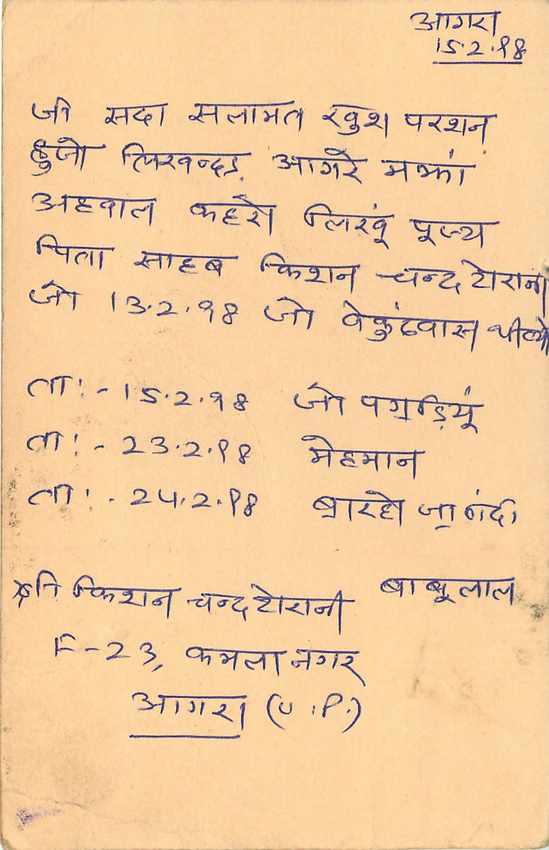 आगरा
15.2.98
जी सदा सलामत खुश परशन
हुजो लिखन्दड़ आगरे मझां
अहवाल कहरो लिखूं पूज्य
पिता साहब किशन चन्द टोरानी
जो 13.2.98 जो वेकुंठवास थीव्यो
ता:- 15.2.98 जो पगड़ियूं
ता:- 23.2.98 मेहमान
ता:- 24.2.98 बारहो
किशन चन्द टोरानी बाबूलाल
F-23, कमला नगर
आगरा (U.P.)